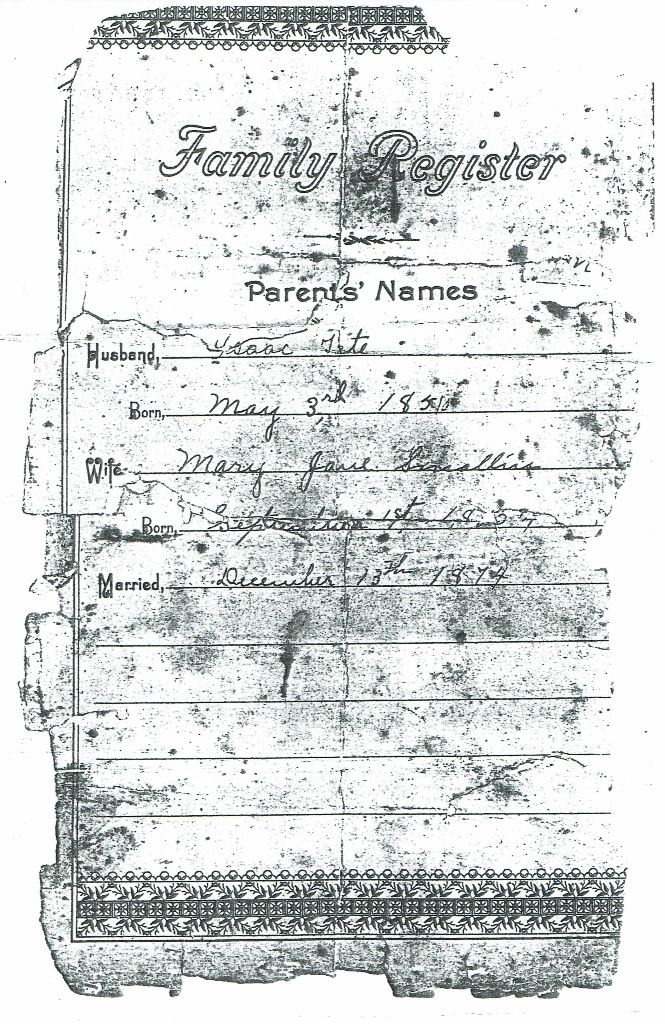 Family Register
Parents' Names
Husband, Isaac Tite
Born, May 3rd 1851
Wife Mary Jane Smallin
Born, September 1st 1857
Married, December 13th 1874